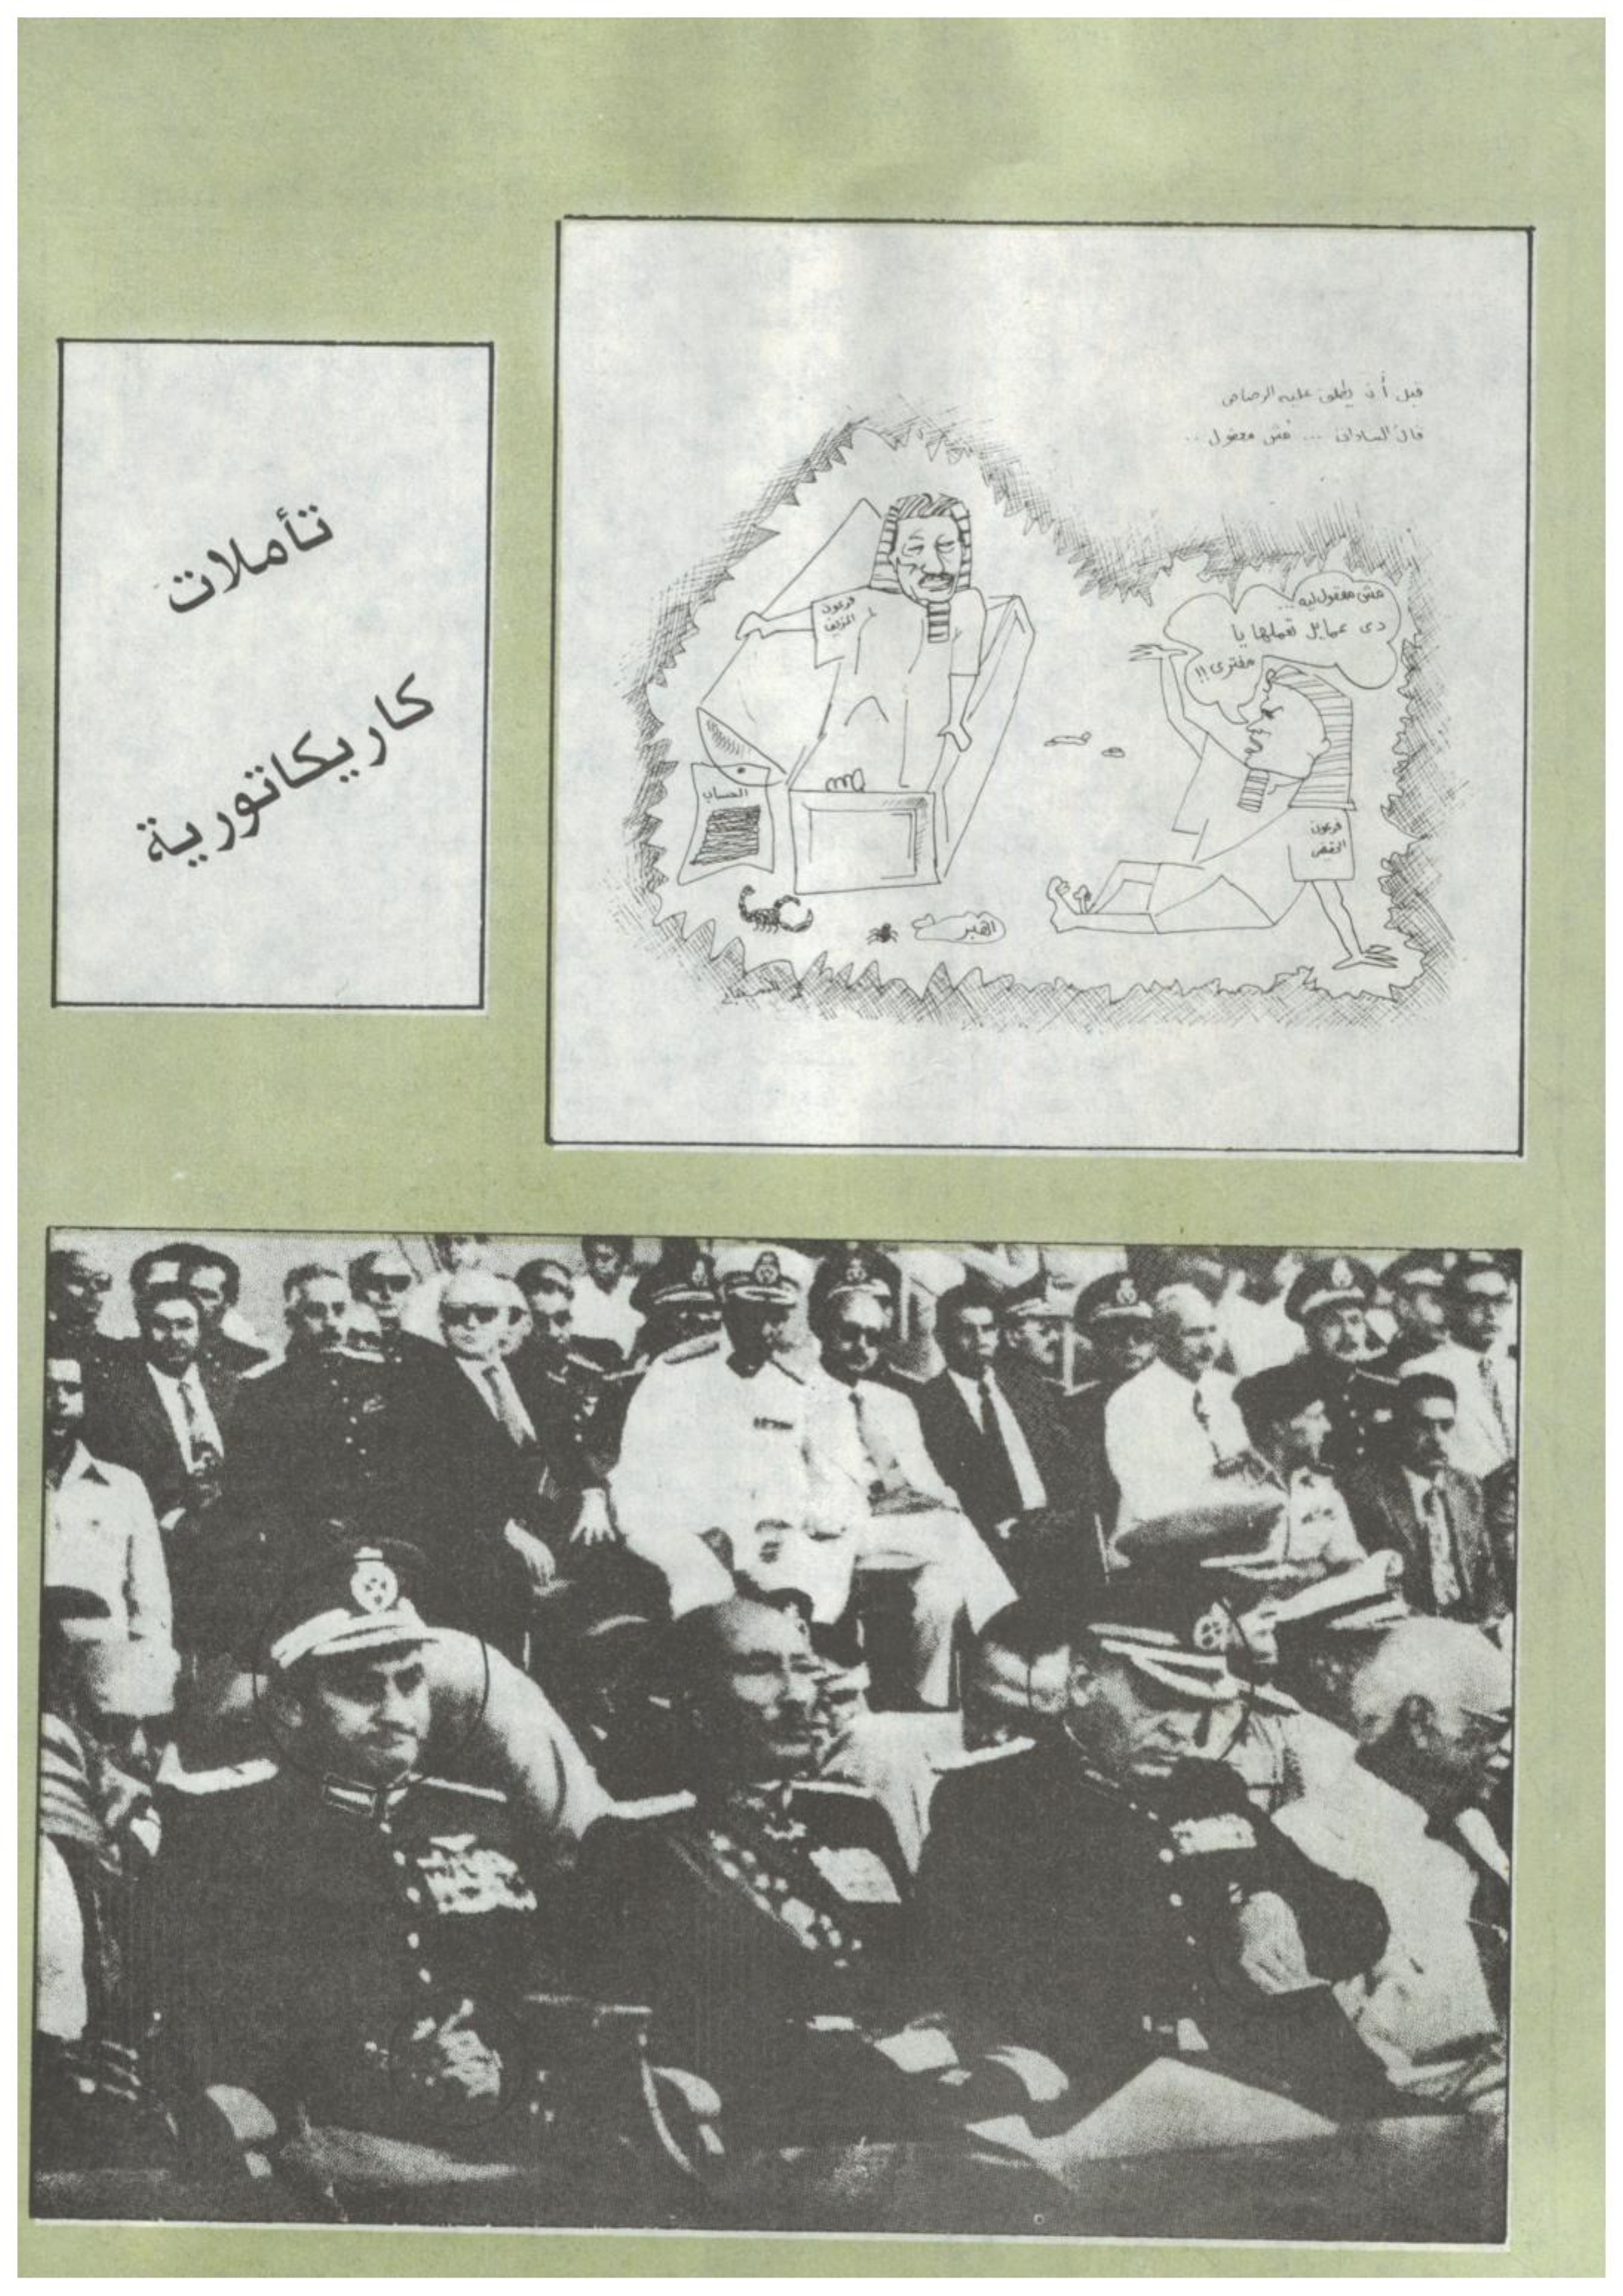 تأملات
كاريكاتورية
قبل أن يطلق عليه الرصاص
قال السادات ... مش معقول ..
مش معقول ليه ...
دى عمايل تعملها يا
مفترى !!
فرعون
المزيف
الحساب
القبر
فرعون